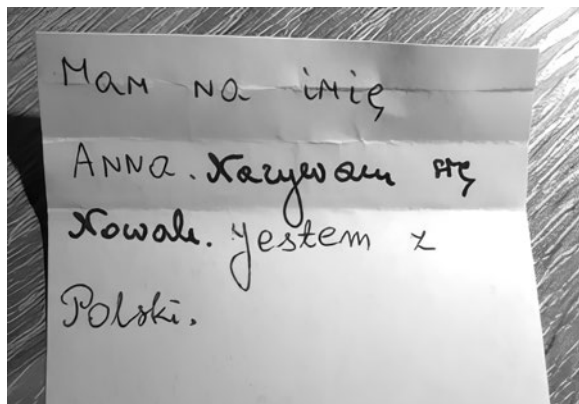 Mam na imię
Anna. Nazywam się
Nowak. Jestem z
Polski.